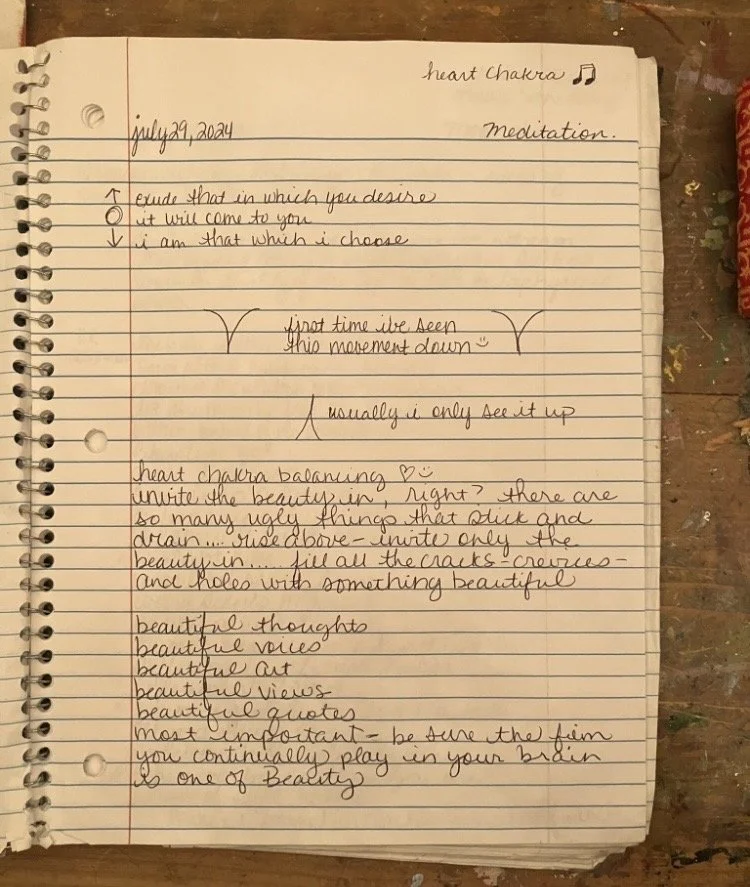 heart chakra ♫
july 29, 2024 meditation.
↑ exude that in which you desire
O it will come to you
↓ i am that which i choose
first time ive seen
this movement down :)
usually i only see it up
heart chakra balancing ♡ :)
invite the beauty in, right? there are
so many ugly things that stick and
drain.... rise above - invite only the
beauty in.... fill all the cracks - crevices -
and holes with something beautiful
beautiful thoughts
beautiful voices
beautiful art
beautiful views
beautiful quotes
most important - be sure the film
you continually play in your brain
is one of Beauty